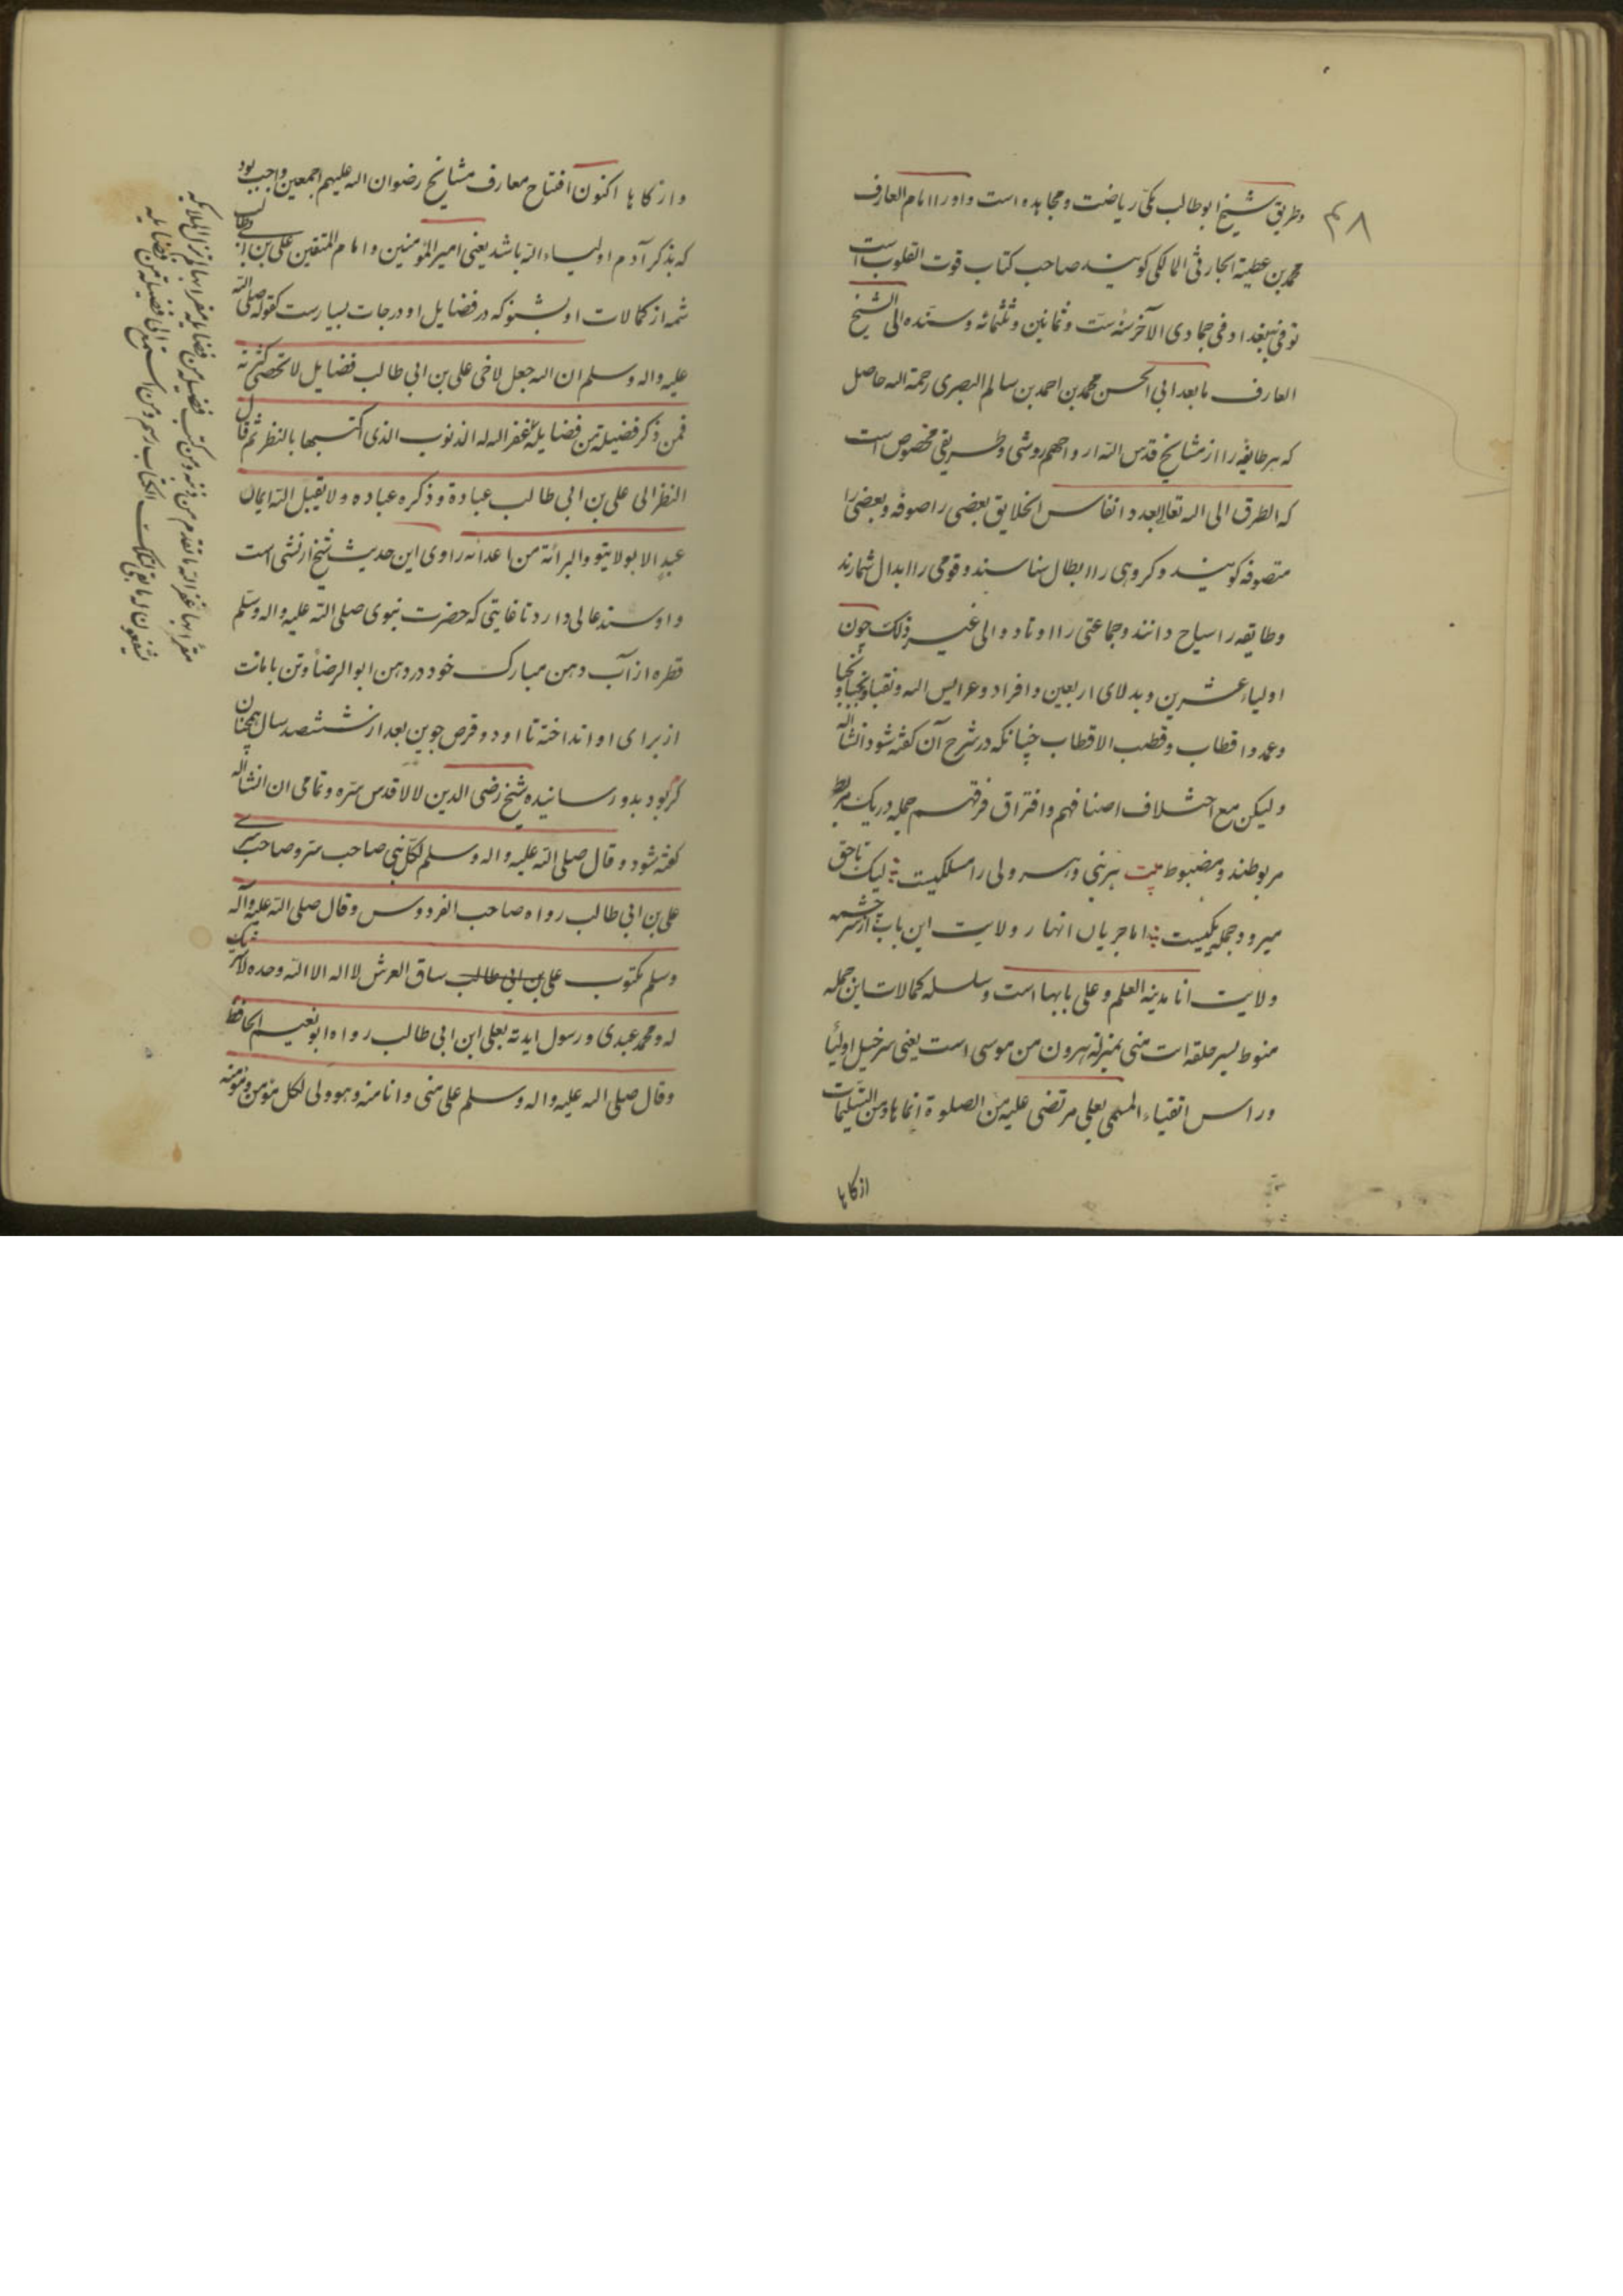 ۴۸
وطریق شیخ ابوطالب مکّی ریاضت ومجاهده است واورا امام العارف
محمد بن عطیة الحارثی المالکی کویند صاحب کتاب قوت القلوب است
توفی ببغداد فی جمادی الآخر سنه ستّ وثمانین وثلثمائه وسنّده الی الشیخ
العارف ابی الحسن محمد بن احمد بن سالم البصری رحمة الله حاصل
که هر طایفه را از مشایخ قدس الله ارواحهم روشی وطریقی مخصوص است
که الطرق الی الله تعالی بعدد انفاس الخلایق بعضی را صوفه وبعضی را
متصوفه کویند وکروهی را ابطال شناسند وقومی را ابدال شمارند
وطایفه را سیاح دانند وجماعتی را اوتاد والی غیر ذلک چون
اولیاء عشرین وبدلای اربعین وافراد وعرایس الله ونقبا ونجبا
وعمد واقطاب وقطب الاقطاب چنانکه در شرح آن کفته شود انشاالله
ولیکن مع اختلاف اصنافهم وافتراق فرقهم جمله در یک ربط
مربوطند ومضبوط بیت هر نبی وهر ولی را مسلکیست لیک تا حق
میرود جمله یکیست اما جریان انهار ولایت این باب از سرچشمه
ولایت انا مدینه العلم وعلی بابها است وسلسله کمالات این جمله
منوط بسر حلقه انت منی بمنزله هرون من موسی است یعنی سر خیل اولیا
وراس اتقیاء المسمی بعلی مرتضی علیه من الصلوة انماها ومن التسلیمات
ازکاها
وازکاها اکنون افتتاح معارف مشایخ رضوان الله علیهم اجمعین واجب بود
که بذکر آدم اولیاء الله باشد یعنی امیر المؤمنین وامام المتقین علی بن ابی طالب
شمه از کمالات او بشنو که در فضایل او درجات بسیارست کقوله صلی الله
علیه واله وسلم ان الله جعل لاخی علی بن ابی طالب فضایل لا تحصی کثرته
فمن ذکر فضیلة من فضایله غفر الله له الذنوب الذی اکتسبها بالنظر ثم قال
النظر الی علی بن ابی طالب عبادة وذکره عباده ولا یقبل الله ایمان
عبد الا بولایتو والبرائة من اعدائه راوی این حدیث شیخ ارنشی است
واو سند عالی دارد تا غایتی که حضرت نبوی صلی الله علیه واله وسلم
قطره از آب دهن مبارک خود در دهن ابو الرضا رتن بامانت
از برای او انداخته تا او دو قرص جوین بعد از ششصد سال همچنان
کرم بود بدو رسانیده شیخ رضی الدین لالا قدس سره وتمامی ان انشاالله
کفته شود وقال صلی الله علیه واله وسلم لکل نبی صاحب سر وصاحب سری
علی بن ابی طالب رواه صاحب الفردوس وقال صلی الله علیه وآله
وسلم مکتوب علی بن ابی طالب ساق العرش لا اله الا الله وحده لا شریک
له ومحمد عبدی ورسول ایدته بعلی ابن ابی طالب رواه ابو نعیم الحافظ
وقال صلی الله علیه واله وسلم علی منی وانا منه وهو ولی لکل مؤمن ومؤمنه
مقرا بها غفر الله ما تقدم من ذنبه ومن کتب فضیله من فضایله لم تزل الملائکه
یستغفرون له ما بقی لتلک الکتاب رسم ومن استمع الی فضیلة من فضایله